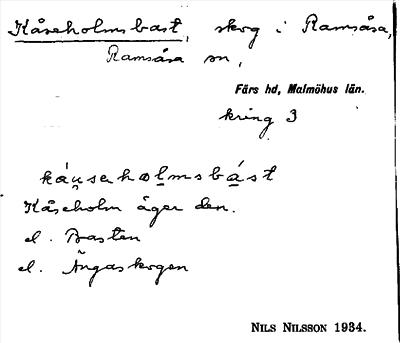 Kåseholmsbast, skog i Ramsåsa,
Ramsåsa sn,
Färs hd, Malmöhus län.
kring 3
káu̯seho̲l̲msbá̲st
Kåseholm äger den.
el. Basten
el. Ängaskogen
NILS NILSSON 1934.